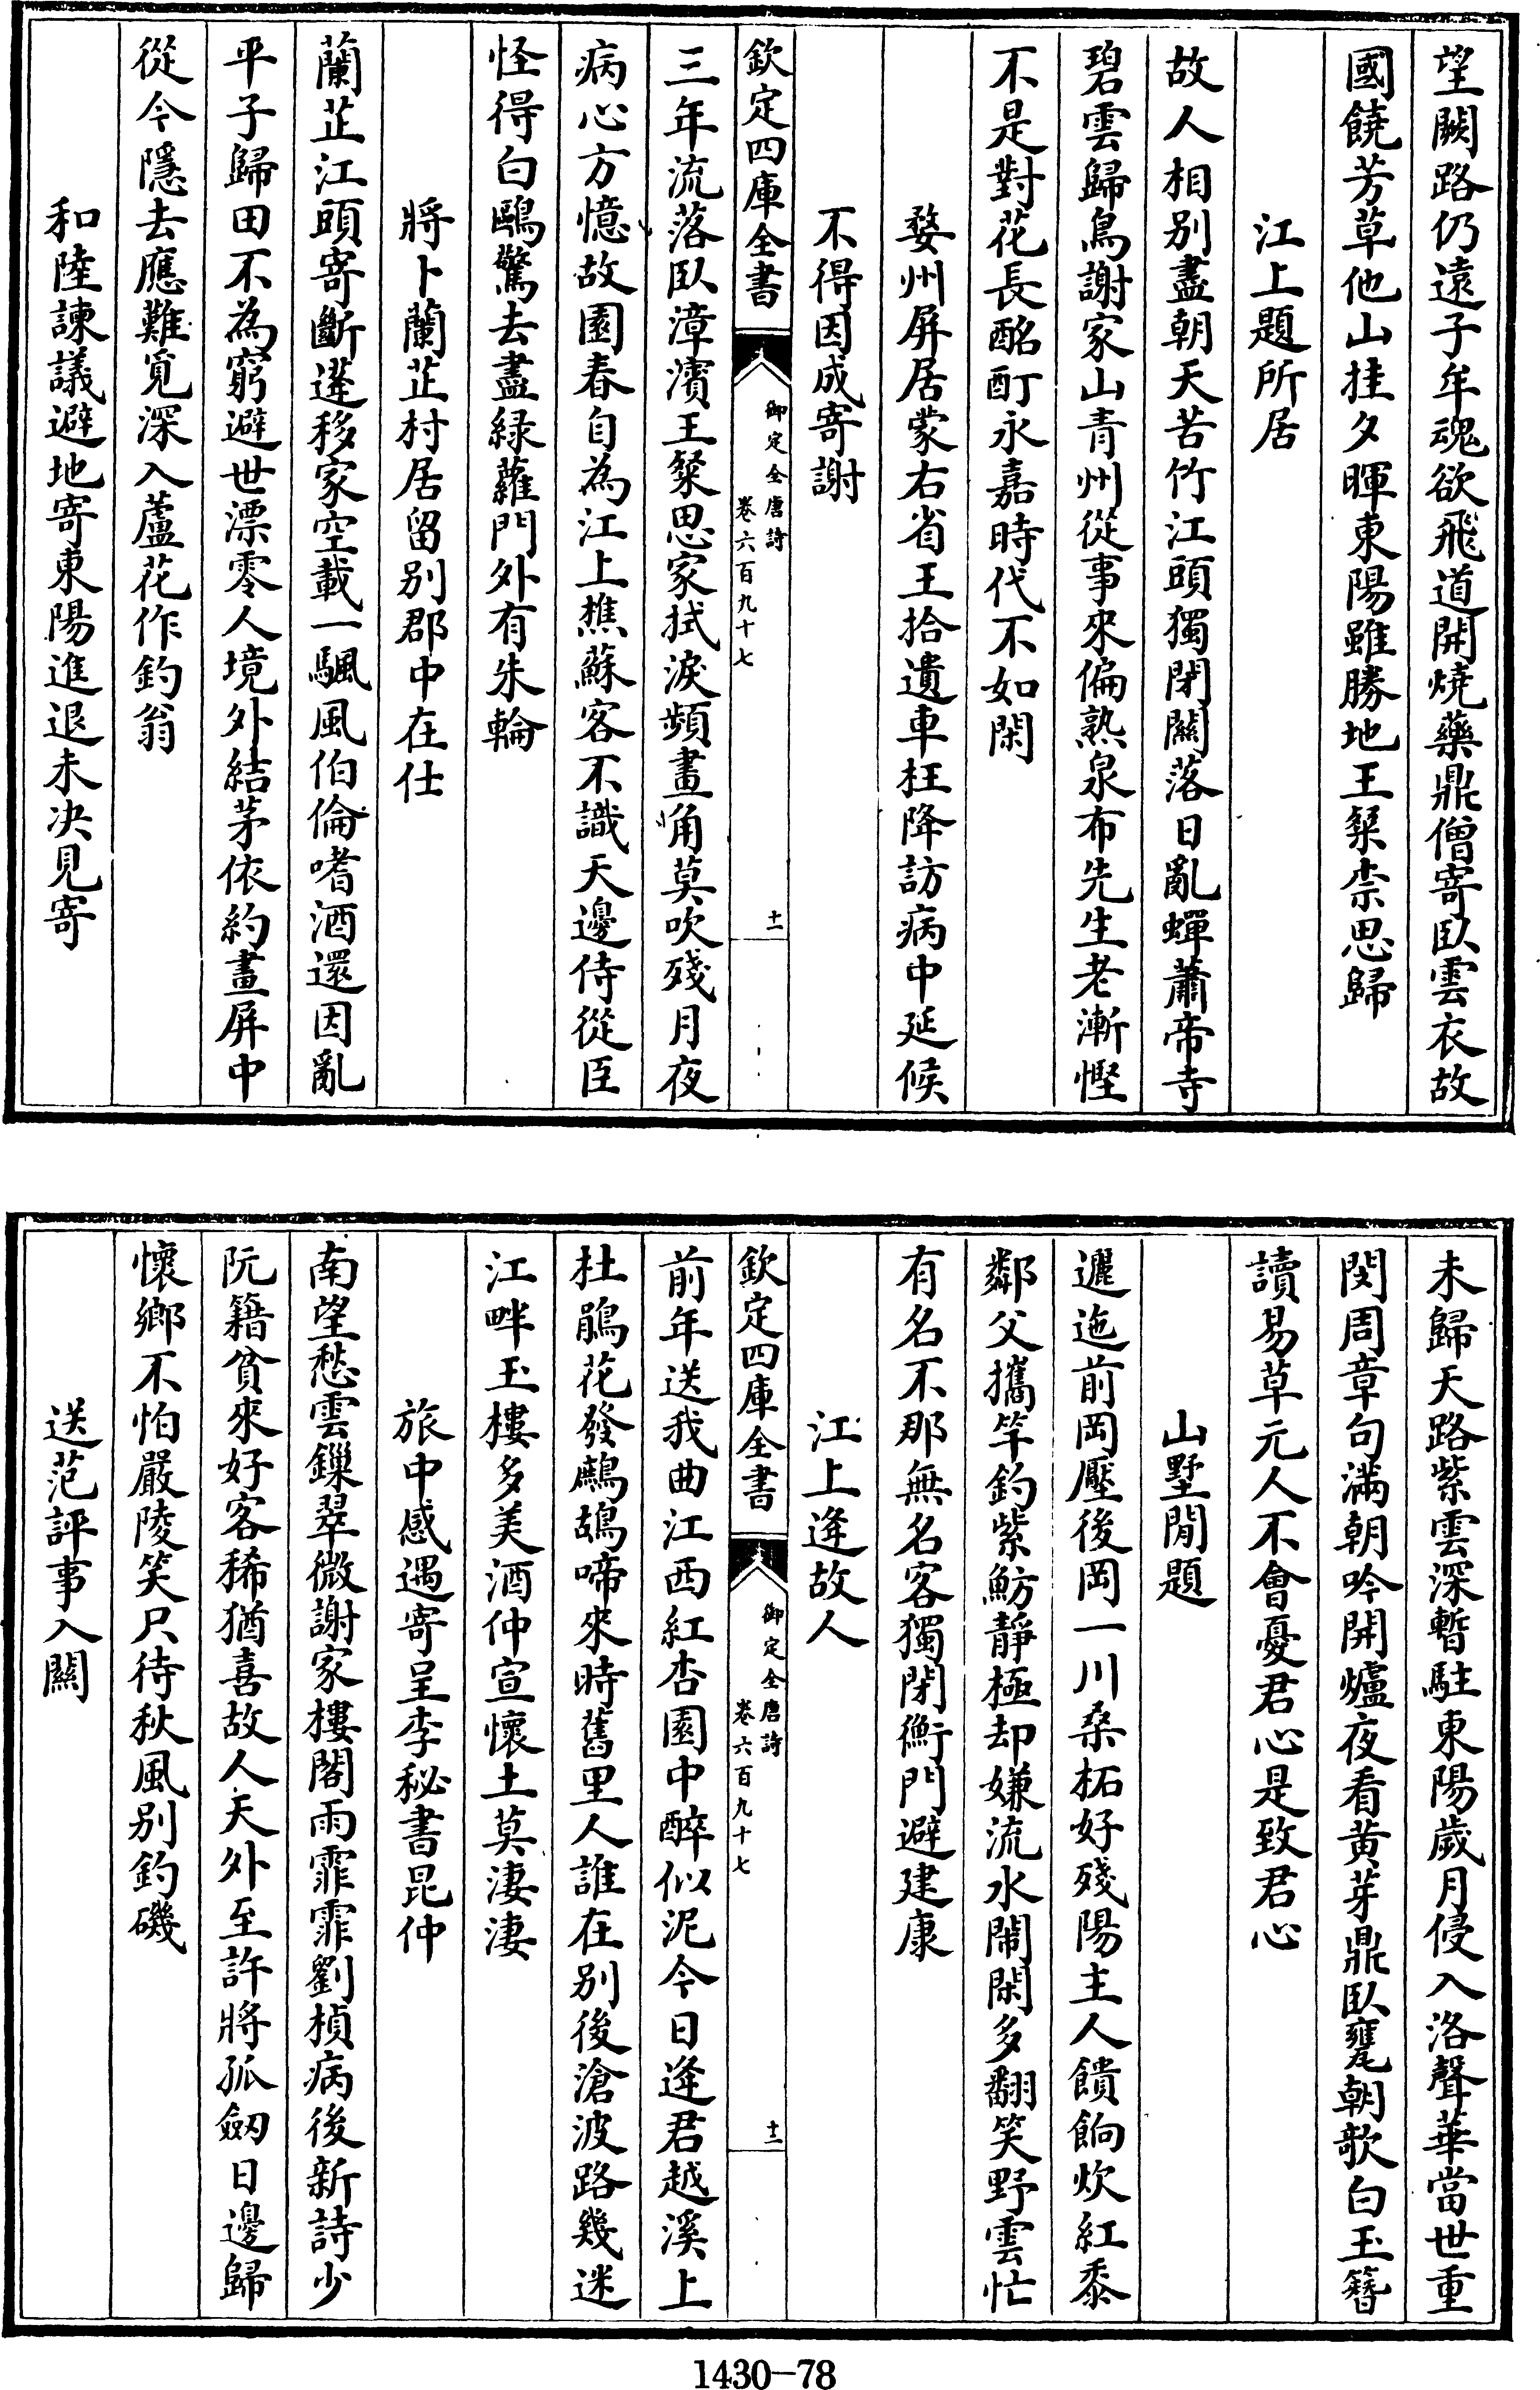 望闕路仍遠子牟魂欲飛道開燒藥鼎僧寄臥雲衣故
國饒芳草他山挂夕暉東陽雖勝地王粲柰思歸
江上題所居
故人相别盡朝天苦竹江頭獨閉關落日亂蟬蕭帝寺
碧雲歸鳥謝家山青州從事來偏熟泉布先生老漸慳
不是對花長酩酊永嘉時代不如閑
婺州屏居蒙右省王拾遺車枉降訪病中延候
不得因成寄謝
欽定四庫全書
御定全唐詩
卷六百九十七
十一
三年流落臥漳濱王粲思家拭淚頻畫角莫吹殘月夜
病心方憶故園春自為江上樵蘇客不識天邊侍從臣
怪得白鷗驚去盡緑蘿門外有朱輪
將卜蘭芷村居留别郡中在仕
蘭芷江頭寄斷蓬移家空載一颿風伯倫嗜酒還因亂
平子歸田不為窮避世漂零人境外結茅依約畫屏中
從今隱去應難覓深入蘆花作釣翁
和陸諫議避地寄東陽進退未决見寄
未歸天路紫雲深暫駐東陽歲月侵入洛聲華當世重
閔周章句滿朝吟開爐夜看黄芽鼎臥甕朝歌白玉簪
讀易草元人不會憂君心是致君心
山墅閒題
邐迤前岡壓後岡一川桑柘好殘陽主人饋餉炊紅黍
鄰父攜竿釣紫魴靜極却嫌流水鬧閑多翻笑野雲忙
有名不那無名客獨閉衡門避建康
江上逢故人
欽定四庫全書
御定全唐詩
卷六百九十七
十二
前年送我曲江西紅杏園中醉似泥今日逢君越溪上
杜鵑花發鷓鴣啼來時舊里人誰在别後滄波路幾迷
江畔玉樓多美酒仲宣懷土莫淒淒
旅中感遇寄呈李秘書昆仲
南望愁雲鏁翠微謝家樓閣雨霏霏劉楨病後新詩少
阮籍貧來好客稀猶喜故人天外至許將孤劒日邊歸
懷鄉不怕嚴陵笑只待秋風别釣磯
送范評事入關
1430-78